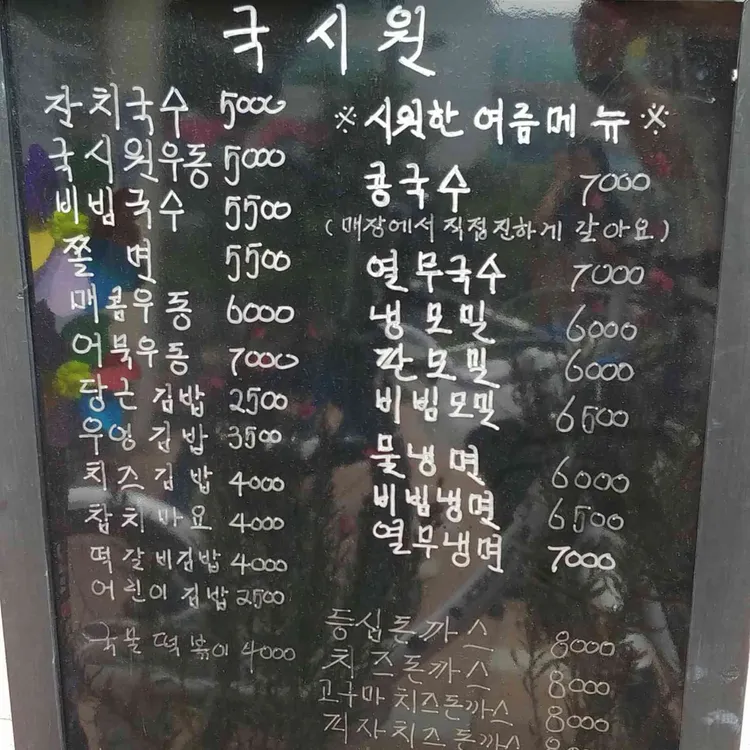 국시원
잔치국수 5000
국시원우동 5000
비빔국수 5500
쫄면 5500
매콤우동 6000
어묵우동 7000
당근김밥 2500
우엉김밥 3500
치즈김밥 4000
참치마요 4000
떡갈비김밥 4000
어린이김밥 2500
국물떡볶이 4000
※시원한 여름메뉴※
콩국수 7000
(매장에서 직접진하게 갈아요)
열무국수 7000
냉모밀 6000
판모밀 6000
비빔모밀 6500
물냉면 6000
비빔냉면 6500
열무냉면 7000
등심돈까스 8000
치즈돈까스 8000
고구마치즈돈까스 8000
피자치즈돈까스